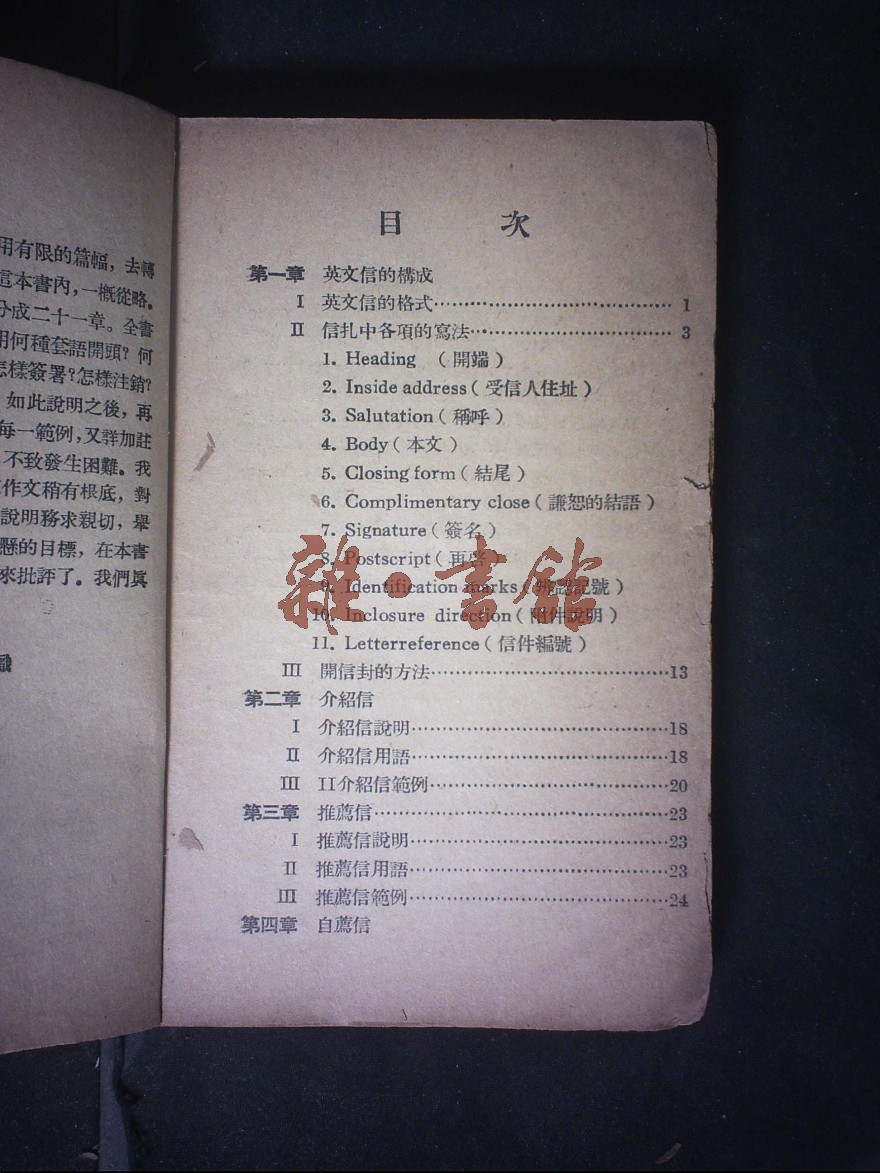 用有限的篇幅，去轉
這本書內，一概從略。
分成二十一章。全書
用何種套語開頭？何
怎樣簽署？怎樣注銷？
如此說明之後，再
每一範例，又詳加註
不致發生困難。我
作文稍有根底，對
說明務求親切，舉
懸的目標，在本書
來批評了。我們眞
識
目 次
第一章 英文信的構成
I 英文信的格式……………………………1
II 信扎中各項的寫法………………………3
1. Heading （開端）
2. Inside address（受信人住址）
3. Salutation（稱呼）
4. Body（本文）
5. Closing form（結尾）
6. Complimentary close（謙恕的結語）
7. Signature（簽名）
8. Postscript（再啓）
9. Identification marks（辨認記號）
10. Inclosure direction（附件說明）
11. Letterreference（信件編號）
III 開信封的方法……………………………13
第二章 介紹信
I 介紹信說明………………………………18
II 介紹信用語………………………………18
III II介紹信範例……………………………20
第三章 推薦信……………………………………23
I 推薦信說明………………………………23
II 推薦信用語………………………………23
III 推薦信範例………………………………24
第四章 自薦信
雜·書館